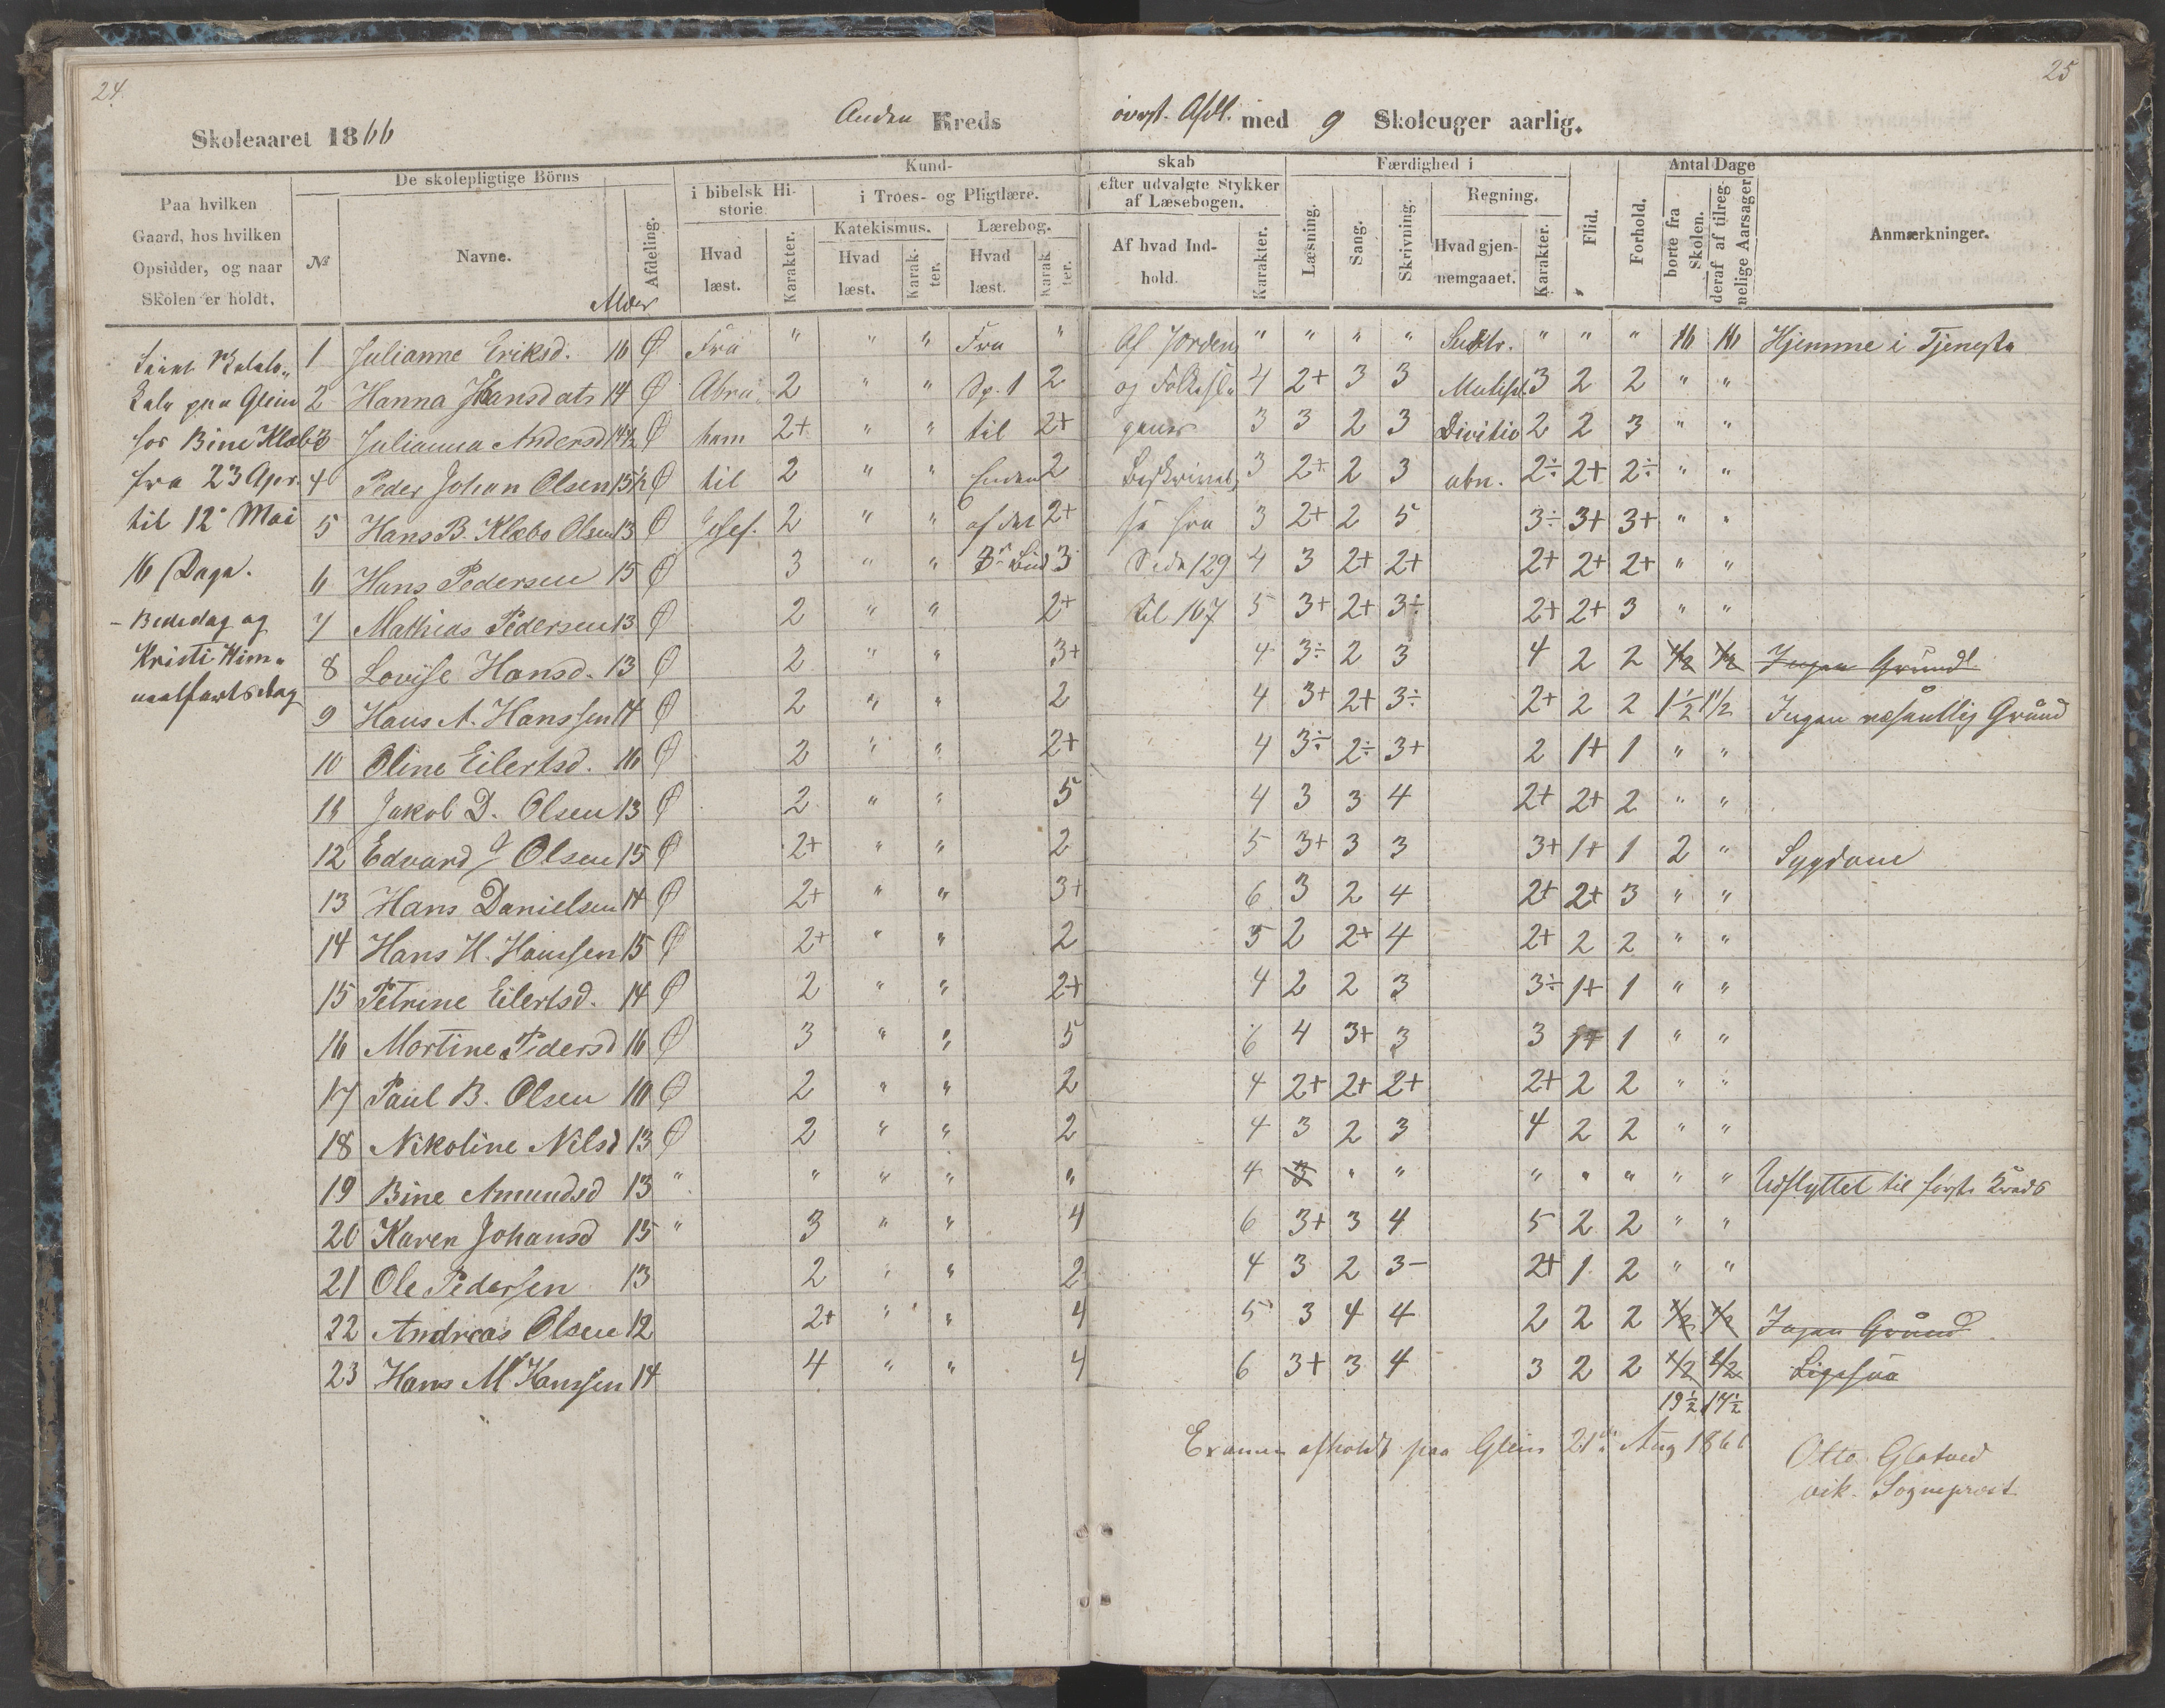 24.
25
Skoleaaret 1866
Anden Kreds
överst. Afdl. med 9 Skoleuger aarlig.
De skolepligtige Börns
Kund-
skab
Færdighed i
Antal Dage
Paa hvilken
Gaard, hos hvilken
Opsidder, og naar
Skolen er holdt.
No
Navne.
Afdeling.
Alder
i bibelsk Hi-
storie
i Troes- og Pligtlære.
Katekismus.
Lærebog.
Hvad
læst.
Karakter.
Hvad
læst.
Karak-
ter.
Hvad
læst.
Karak
ter.
efter udvalgte Stykker
af Læsebogen.
Af hvad Ind-
hold.
Karakter.
Læsning.
Sang.
Skrivning.
Regning.
Hvad gjen-
nemgaaet.
Karakter.
Flid.
Forhold.
borte fra
Skolen.
deraf af tilreg-
nelige Aarsager
Anmærkninger.
paa Glein
hos Bine Klæbo
fra 23 Apr.
til 12te Mai
16 Dage.
- Bededag og
Kristi Him-
melfartsdag
1 Julianne Eriksd. 16 Ø Fra " " " Fra " Af Jorden " " " " Subtr. " " " 16 16 Hjemme i Tjeneste
2 Hanna Hansdatr 14 Ø Abra- 2 " " Sp. 1 2 og Folkesla 4 2+ 3 3 Multipl. 3 2 2 " "
3 Julianna Andersd 14½ Ø ham 2+ " " til 2+ genes 3 3 2 3 Divitio 2 2 3 " "
4 Peder Johan Olsen 15½ Ø til 2 " " Enden 2 Beskrivel 3 2+ 2 3 ubn. 2÷ 2+ 2÷ " "
5 Hans B. Klæbo Olsen 13 Ø Josef. 2 " " af det 2+ se fra 3 2+ 2 5 3÷ 3+ 3+ " "
6 Hans Pedersen 15 Ø 3 " " 3die Bud 3 Side 129 4 3 2+ 2+ 2+ 2+ 2+ " "
7 Mathias Pedersen 13 Ø 2 " " 2+ til 167 5 3+ 2+ 3÷ 2+ 2+ 3 " "
8 Lovise Hansd. 13 Ø 2 " " 3+ 4 3÷ 2 3 4 2 2 ½ ½ Ingen Grund
9 Hans A. Hanssen 14 Ø 2 " " 2 4 3+ 2+ 3÷ 2+ 2 2 1½ 1½ Ingen væsentlig Grund
10 Oline Eilertsd. 16 Ø 2 " " 2+ 4 3÷ 2÷ 3+ 2 1+ 1 " "
11 Jakob D. Olsen 13 Ø 2 " " 5 4 3 3 4 2+ 2+ 2 " "
12 Edvard J Olsen 15 Ø 2+ " " 2 5 3+ 3 3 3+ 1+ 1 2 " Sygdom
13 Hans Danielsen 14 Ø 2+ " " 3+ 6 3 2 4 2+ 2+ 3 " "
14 Hans H. Hanssen 15 Ø 2+ " " 2 5 2 2+ 4 2+ 2 2 " "
15 Petrine Eilertsd. 14 Ø 2 " " 2+ 4 2 2 3 3÷ 1+ 1 " "
16 Mortine Pedersd 16 Ø 3 " " 5 6 4 3+ 3 3 1+ 1 " "
17 Paul B. Olsen 10 Ø 2 " " 2 4 2+ 2+ 2+ 2+ 2 2 " "
18 Nikoline Nilsd 13 Ø 2 " " 2 4 3 2 3 4 2 2 " "
19 Bine Amundsd 13 " " " " " 4 3 " " " " " " " Udflyttet til første Kreds
20 Karen Johansd 15 " 3 " " 4 6 3+ 3 4 5 2 2 " "
21 Ole Pedersen 13 2 " " 2 4 3 2 3- 2+ 1 2 " "
22 Andreas Olsen 12 2+ " " 4 5 3 4 4 2 2 2 ½ ½ Ingen Grund
23 Hans M Hanssen 14 4 " " 4 6 3+ 3 4 3 2 2 ½ ½ Ligesaa
19½ 17½
Examen afholdt paa Glein 21de Aug 1866
Otto Glatved
vik. Sogneprest